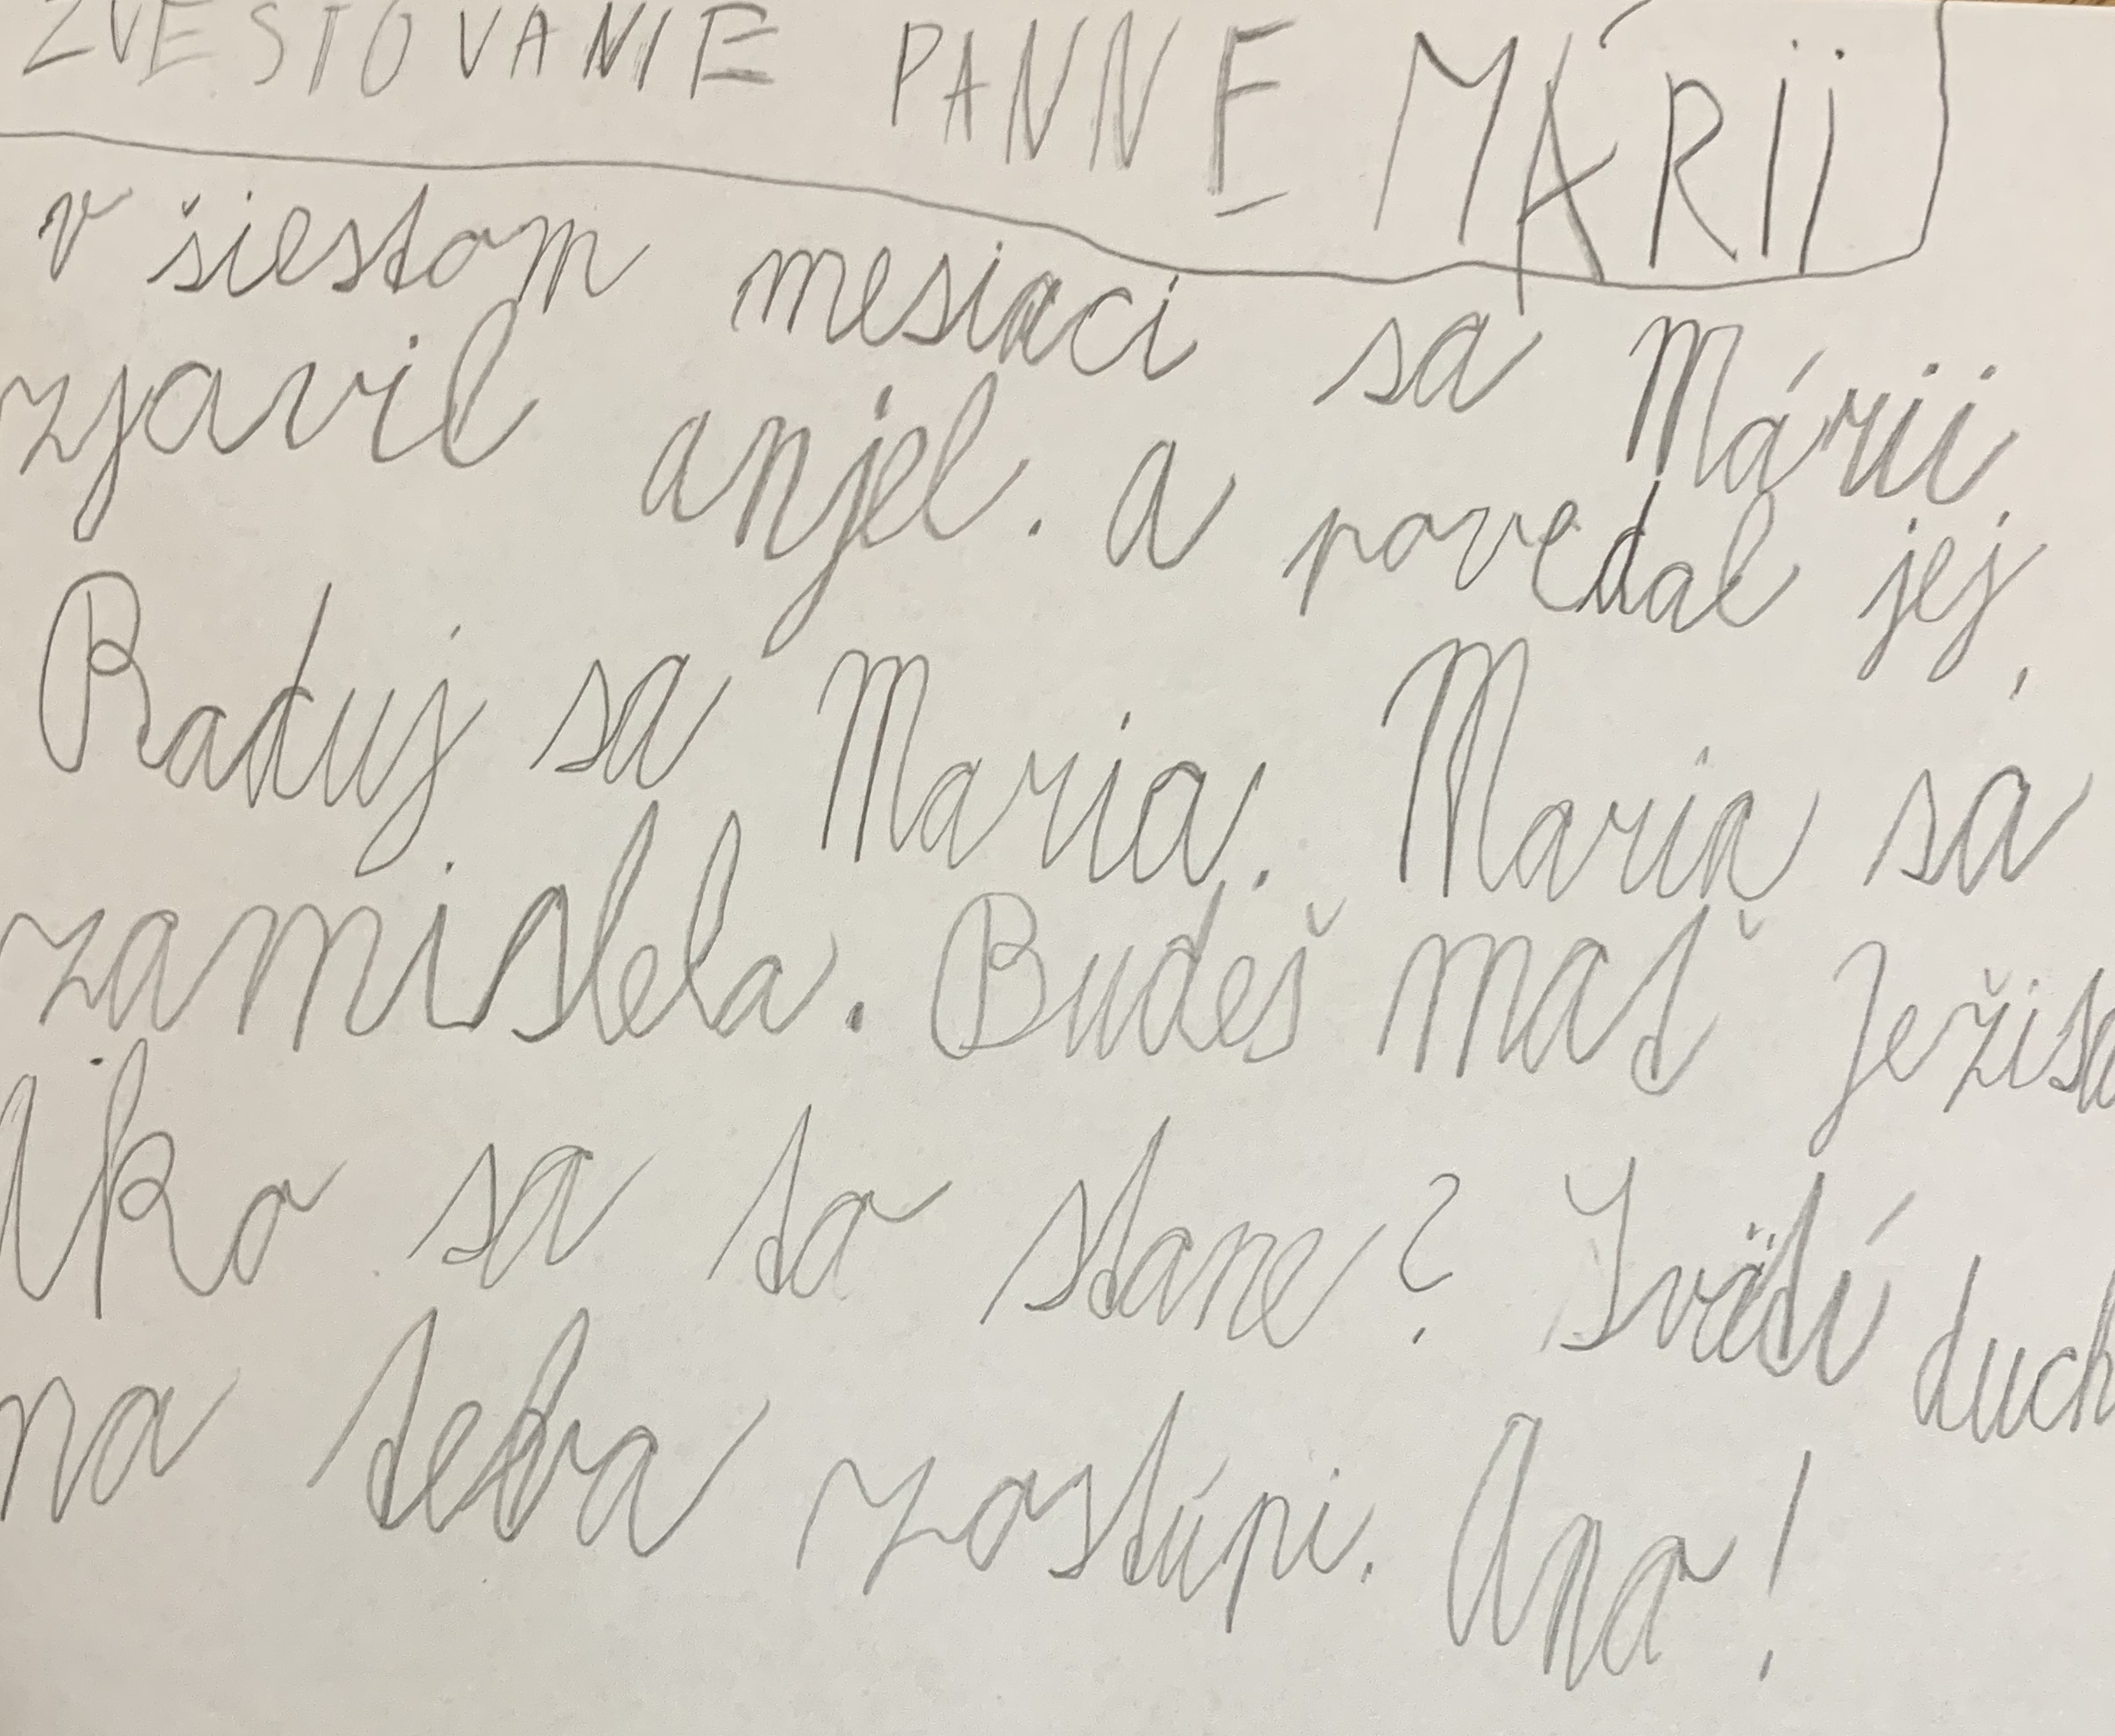 ZVESTOVANIE PANNE MÁRII
v šiestom mesiaci sa Márii
zjavil anjel. a povedal jej,
Raduj sa Maria. Maria sa
zamislela. Budeš mať Ježiša
Ako sa to stane? Svätí duch
na teba zostúpi. Ano!